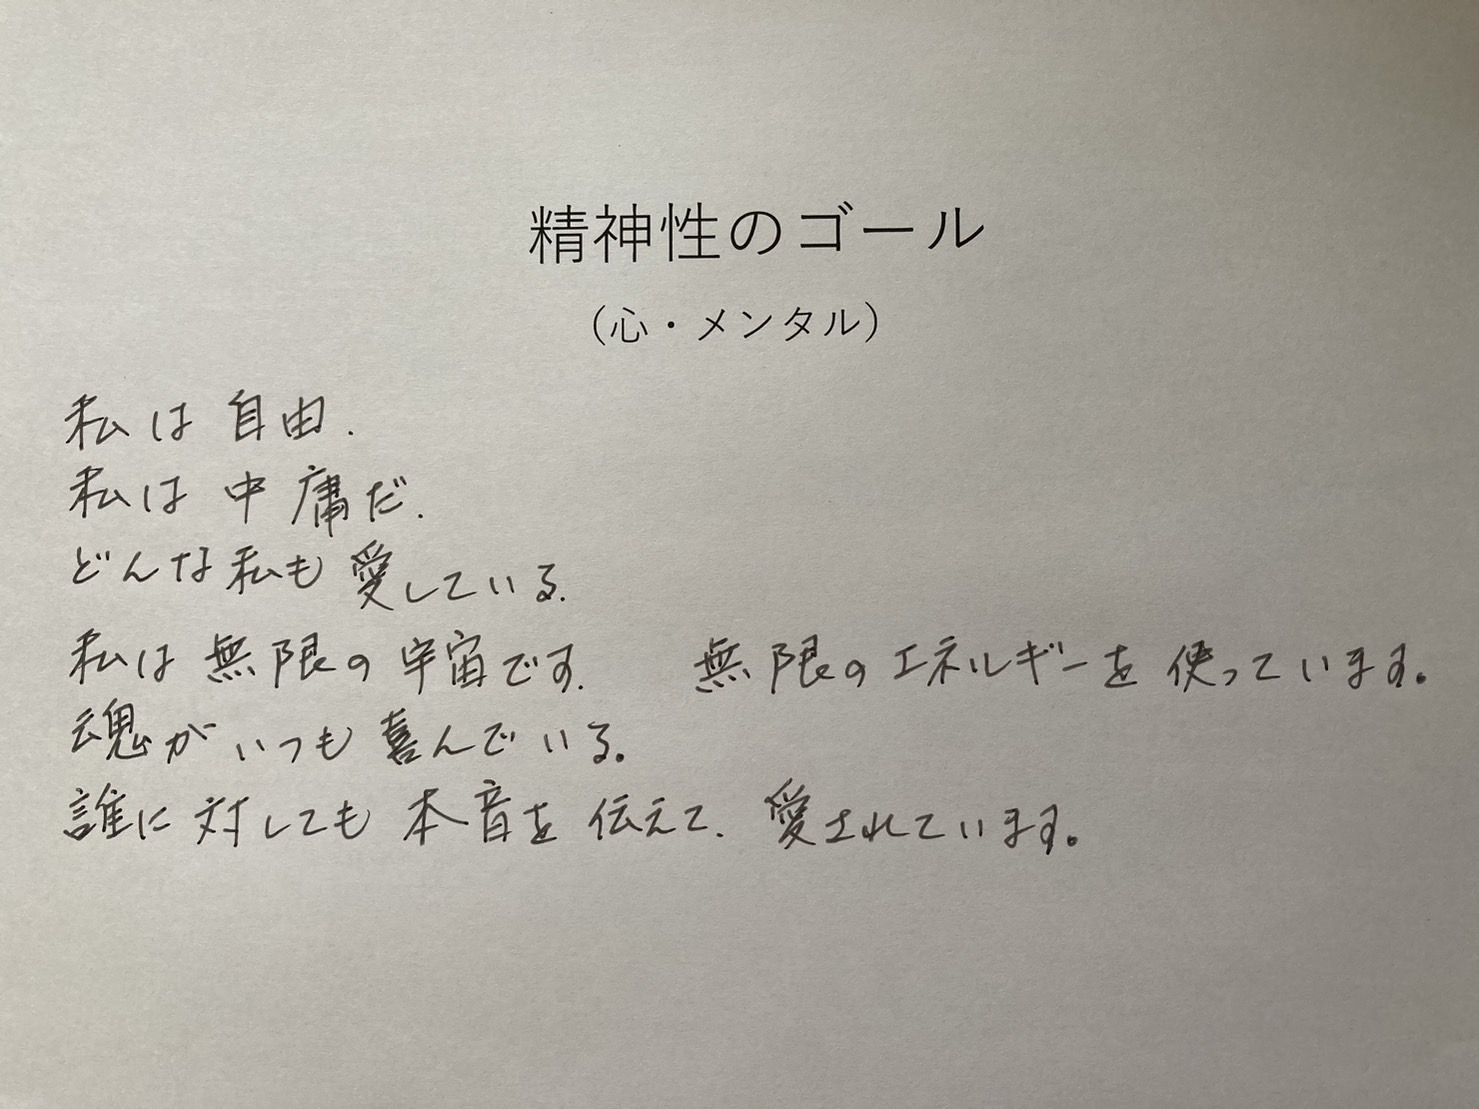 精神性のゴール
（心・メンタル）
私は自由.
私は中庸だ.
どんな私も愛している.
私は無限の宇宙です. 無限のエネルギーを使っています。
魂がいつも喜んでいる。
誰に対しても本音を伝えて. 愛されています。